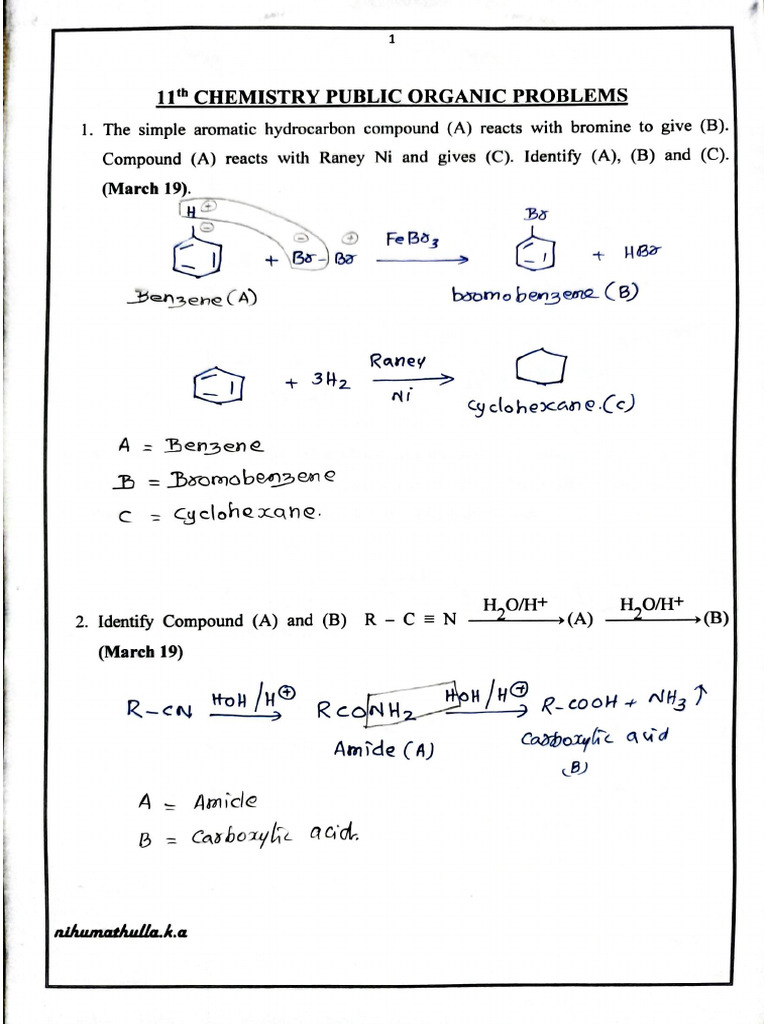 1
11th CHEMISTRY PUBLIC ORGANIC PROBLEMS
1. The simple aromatic hydrocarbon compound (A) reacts with bromine to give (B).
Compound (A) reacts with Raney Ni and gives (C). Identify (A), (B) and (C).
(March 19).
H ⊕
⊖
Br
⊖ ⊕
+ Br – Br FeBr3 → + HBr
Benzene (A) bromobenzene (B)
+ 3H2 Raney Ni →
cyclohexane.(c)
A = Benzene
B = Bromobenzene
C = Cyclohexane.
2. Identify Compound (A) and (B) R – C ≡ N H2O/H+ → (A) H2O/H+ → (B)
(March 19)
R–CN HOH/H⊕ → RCONH2 HOH/H⊕ → R–COOH + NH3↑
Amide (A) Carboxylic acid
(B)
A = Amide
B = Carboxylic acid.
nihumathulla.k.a